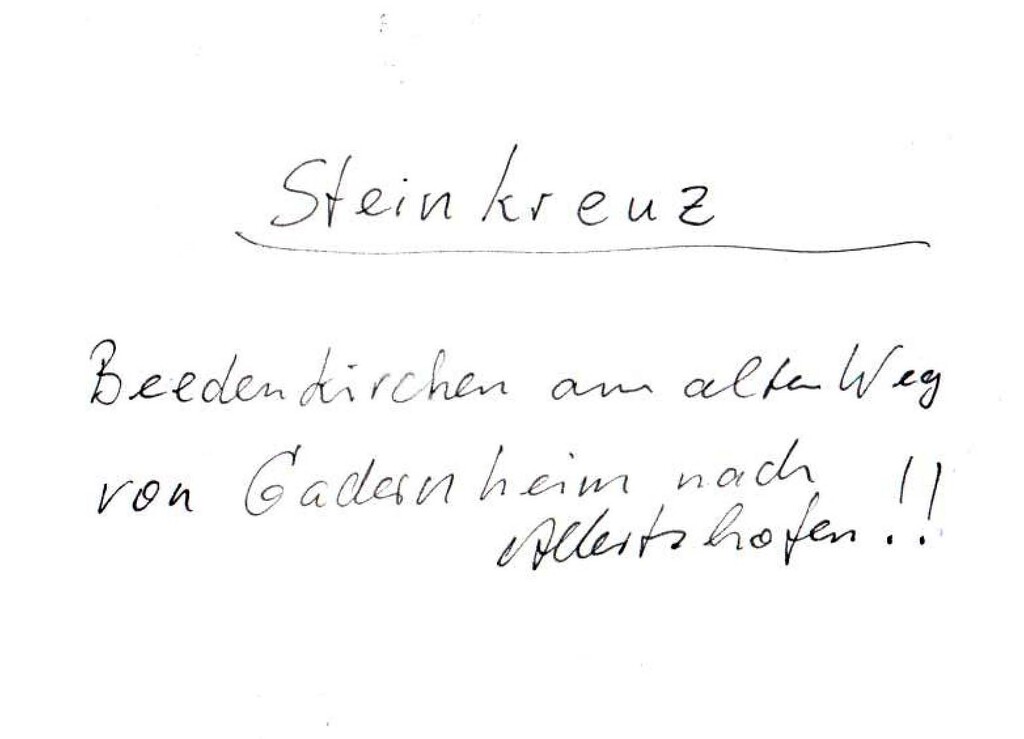 Steinkreuz
Beedenkirchen am alten Weg
von Gadernheim nach
Allertshofen!!